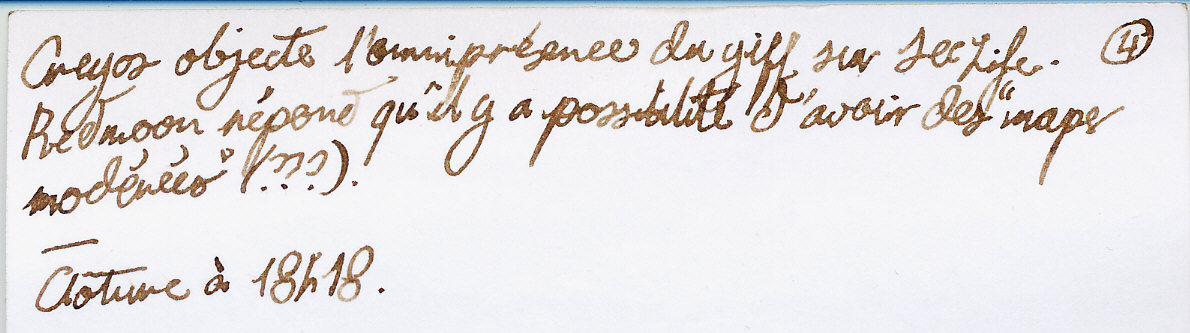 Creyos objecte l'omniprésence du yiff sur SecLife. 4
Redmoon répond qu'il y a possibilité d'avoir des "maps
modérées" (???).
Clôture à 18h18.